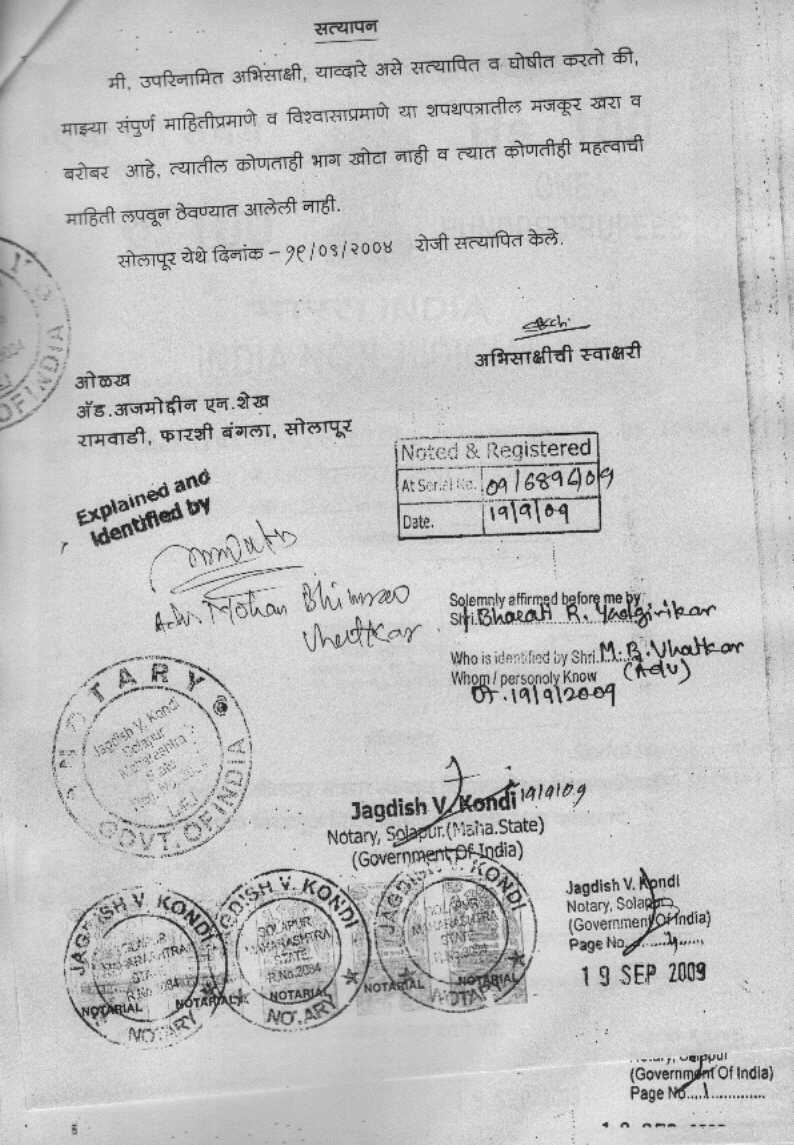 सत्यापन
मी, उपरिनामित अभिसाक्षी, याव्दारे असे सत्यापित व घोषीत करतो की,
माझ्या संपुर्ण माहितीप्रमाणे व विश्वासाप्रमाणे या शपथपत्रातील मजकूर खरा व
बरोबर आहे, त्यातील कोणताही भाग खोटा नाही व त्यात कोणतीही महत्वाची
माहिती लपवून ठेवण्यात आलेली नाही.
सोलापूर येथे दिनांक - १९/०९/२००९ रोजी सत्यापित केले.
अभिसाक्षीची स्वाक्षरी
ओळख
ॲड.अजमोद्दीन एन.शेख
रामवाडी, फारशी बंगला, सोलापूर
Noted & Registered
At Serial No. 09/6894/09
Date. 19/9/09
Explained and
Identified by
Adv. Mohan Bhimrao
Vhatkar
Solemnly affirmed before me by
Shri. Bharati R. Yadgirikar
Who is identified by Shri. M. B. Vhatkar
Whom / personoly Know (Adv)
Dt. 19/9/2009
NOTARY
Jagdish V. Kondi
Solapur
Maharashtra
State
GOVT. OF INDIA
OF INDIA
Jagdish V. Kondi 19/9/09
Notary, Solapur.(Maha.State)
(Government Of India)
JAGDISH V. KONDI
SOLAPUR
MAHARASHTRA
STATE
R.No.2084
NOTARIAL
NOTARY
JAGDISH V. KONDI
SOLAPUR
MAHARASHTRA
STATE
R.No.2084
NOTARIAL
NOTARY
JAGDISH V. KONDI
SOLAPUR
MAHARASHTRA
STATE
R.No.2084
NOTARIAL
NOTARIAL
NOTARY
Jagdish V. Kondi
Notary, Solapur
(Government Of India)
Page No.
19 SEP 2009
(Government Of India)
Page No. 1